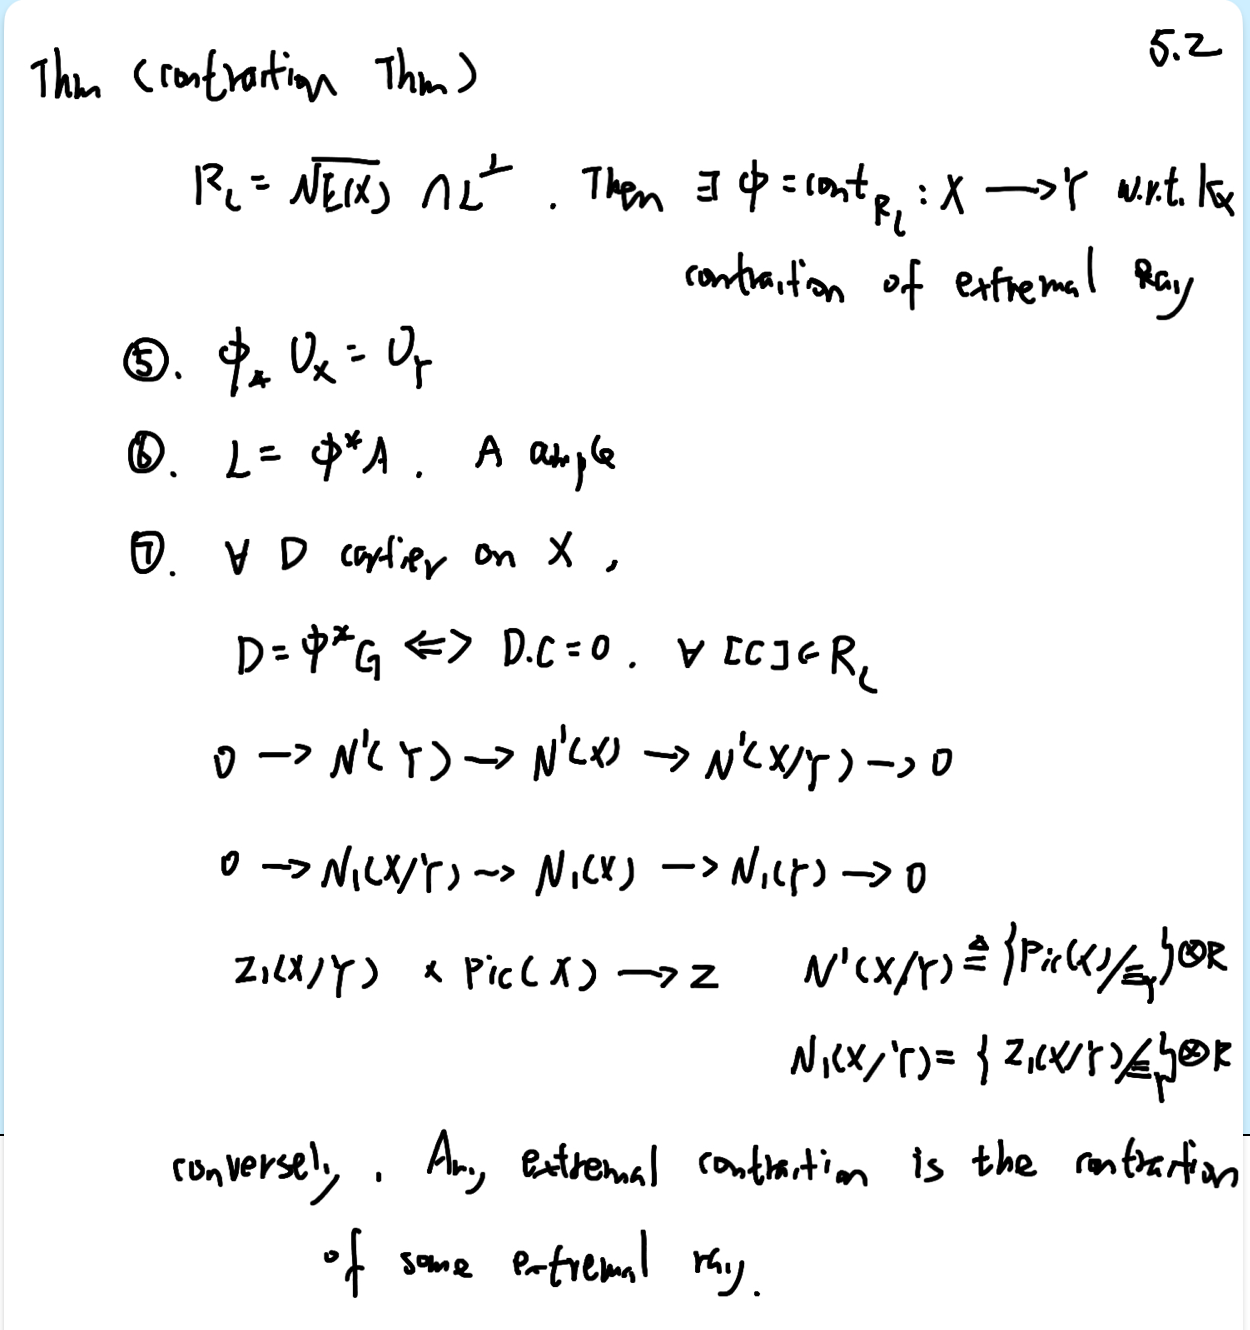 5.2
Thm (contraction Thm)
R_L = \overline{NE(X)} ∩ L^⊥. Then ∃ φ = cont_{R_L} : X → Y w.r.t. K_X
contraction of extremal Ray
⑤. φ_* O_X = O_Y
⑥. L = φ^*A. A ample
⑦. ∀ D cartier on X,
D = φ^*G ⇔ D.C = 0. ∀ [C] ∈ R_L
0 → N^1(Y) → N^1(X) → N^1(X/Y) → 0
0 → N_1(X/Y) → N_1(X) → N_1(Y) → 0
Z_1(X/Y) × Pic(X) → Z N^1(X/Y) ≜ {Pic(X)/≡_Y} ⊗ R
N_1(X/Y) = {Z_1(X/Y)/≡_Y} ⊗ R
conversely, Any extremal contraction is the contraction
of some extremal ray.